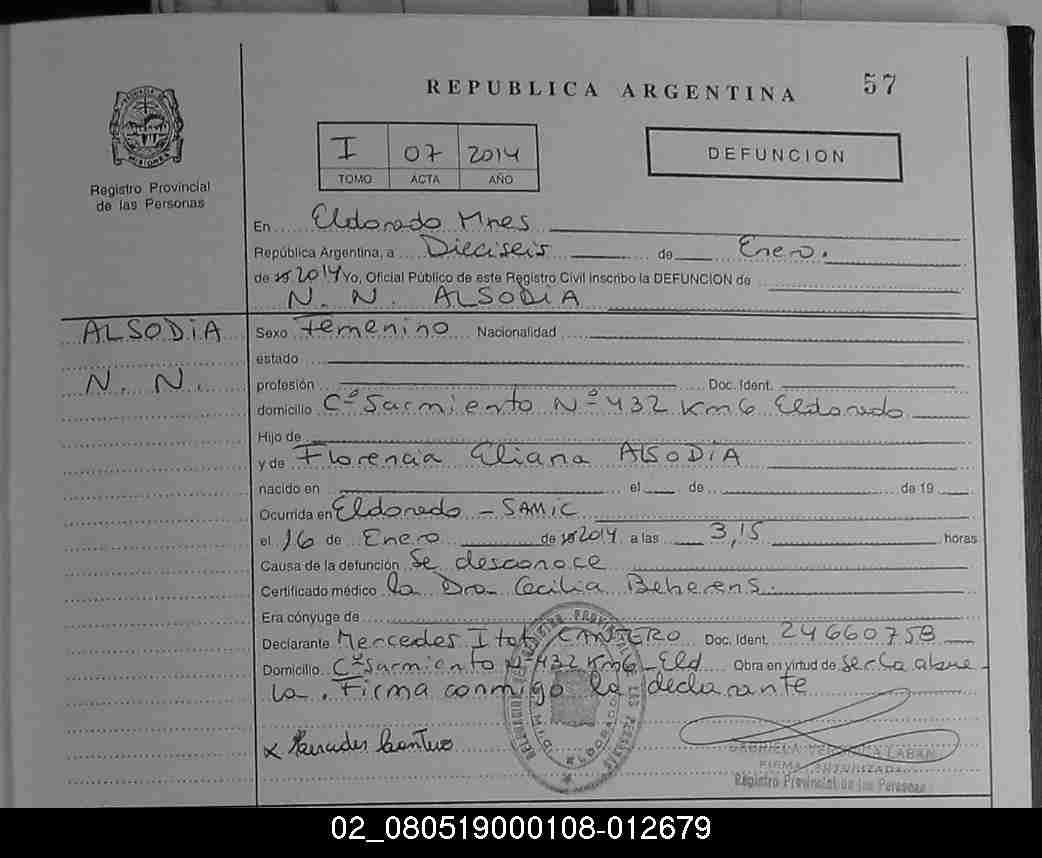 REPUBLICA ARGENTINA
57
Registro Provincial
de las Personas
I 07 2014
TOMO ACTA AÑO
DEFUNCION
En Eldorado Mnes
República Argentina, a Dieciseis de Enero.
de 2014 Yo, Oficial Público de este Registro Civil inscribo la DEFUNCION de
N. N. ALSODIA
ALSODIA
N. N.
Sexo Femenino Nacionalidad
estado
profesión Doc. Ident.
domicilio Cº Sarmiento Nº 432 Km6 Eldorado
Hijo de
y de Florencia Eliana ALSODIA
nacido en el de de 19
Ocurrida en Eldorado - SAMIC
el 16 de Enero de 2014 a las 3,15 horas
Causa de la defunción Se desconoce
Certificado médico la Dra Cecilia Beherens.
Era cónyuge de
Declarante Mercedes CANTERO Doc. Ident. 24660758
Domicilio Cº Sarmiento Nº 432 Km6 - Eld Obra en virtud de ser la abue-
la. Firma conmigo la declarante
x Mercedes Cantero
ELDORADO
FIRMA AUTORIZADA
Registro Provincial de las Personas
02_080519000108-012679